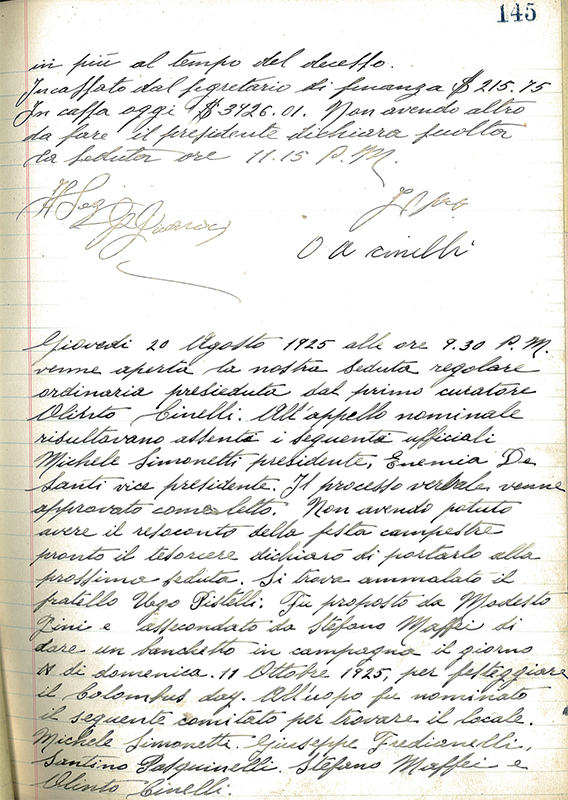 145
in più al tempo del decesso.
Incassato dal segretario di finanza $ 215.75
In cassa oggi $ 3426.01. Non avendo altro
da fare il presidente dichiara sciolta
la seduta ore 11.15 P.M.
Il Seg
O A Cinelli
Giovedi 20 Agosto 1925 alle ore 9.30 P.M.
venne aperta la nostra seduta regolare
ordinaria presieduta dal primo curatore
Olinto Cinelli. All'appello nominale
risultavano assenti i seguenti ufficiali
Michele Simonetti presidente, Enemia De
Santi vice presidente. Il processo verbale, venne
approvato come letto. Non avendo potuto
avere il resoconto della festa campestre
pronto il tesoriere dichiarò di portarlo alla
prossima seduta. Si trova ammalato il
fratello Ugo Pistelli. Fu proposto da Modesto
Zini e assecondato da Stefano Maffei di
dare un banchetto in campagna il giorno
di domenica. 11 Ottobre 1925, per festeggiare
il Colombus day. All'uopo fu nominato
il seguente comitato per trovare il locale.
Michele Simonetti. Giuseppe Fredianelli,
Santino Pasquinelli. Stefano Maffei e
Olinto Cinelli.